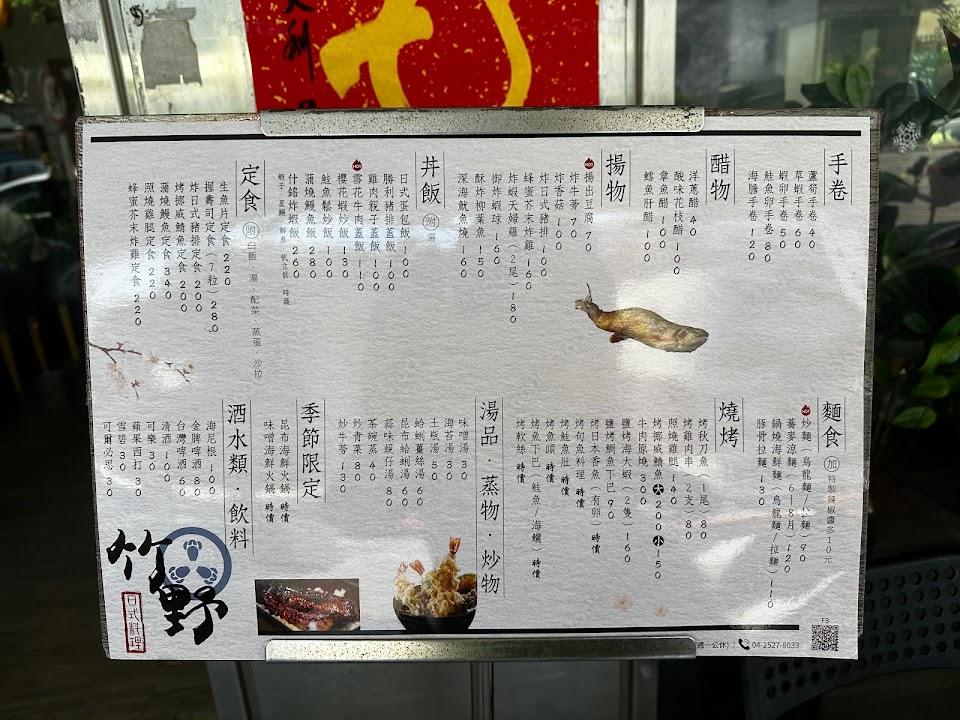 手卷
蘆筍手卷 40
草蝦手卷 60
蝦卵手卷 50
鮭魚卵手卷 80
海膽手卷 120
醋物
洋蔥醋 40
酸味花枝醋 100
章魚醋 100
鱈魚肝醋 100
揚物
揚出豆腐 70
炸牛蒡 70
炸香菇 100
炸日式豬排 100
蜂蜜芥末炸雞 160
炸蝦天婦羅(2尾) 180
御炸蝦球 160
酥炸柳葉魚 150
深海魷魚燒 160
丼飯 附湯
日式蛋包飯 100
勝利豬排蓋飯 100
雞肉親子蓋飯 100
雪花牛肉蓋飯 110
櫻花蝦炒飯 130
鮭魚鬆炒飯 100
蒲燒鰻魚飯 280
什錦炸蝦飯 260
定食 附 白飯．湯．配菜．蒸蛋．沙拉
生魚片定食 220
握壽司定食(7粒) 280
炸日式豬排定食 200
烤挪威鯖魚定食 200
蒲燒鰻魚定食 340
照燒雞腿定食 220
蜂蜜芥末炸雞定食 220
麵食 加 特製辣椒醬多10元
炒麵(烏龍麵/拉麵) 90
蕎麥涼麵(6-8月) 120
鍋燒海鮮麵(烏龍麵/拉麵) 110
豚骨拉麵 130
燒烤
烤秋刀魚(1尾) 80
烤雞肉串(2支) 80
照燒雞腿 140
烤挪威鯖魚 大200 小150
牛肉原燒 300
鹽烤海大蝦(2隻) 160
鹽烤鯛魚下巴 90
烤日本香魚(有卵) 時價
烤旬魚料理 時價
烤鮭魚肚 時價
烤魚頭 時價
烤魚下巴(鮭魚/海鱺) 時價
烤軟絲 時價
湯品．蒸物．炒物
味噌湯 30
海苔湯 30
土瓶湯 50
蛤蜊薑絲湯 60
昆布蛤蜊湯 60
蒜味蜆仔湯 80
茶碗蒸 40
炒青菜 80
炒牛蒡 130
季節限定
昆布海鮮火鍋 時價
味噌海鮮火鍋 時價
酒水類．飲料
海尼根 100
金牌啤酒 80
台灣啤酒 60
清酒 100
可樂 30
蘋果西打 30
雪碧 30
可爾必思 30
竹野
日式料理
週一公休)
04-2527-8033
FB